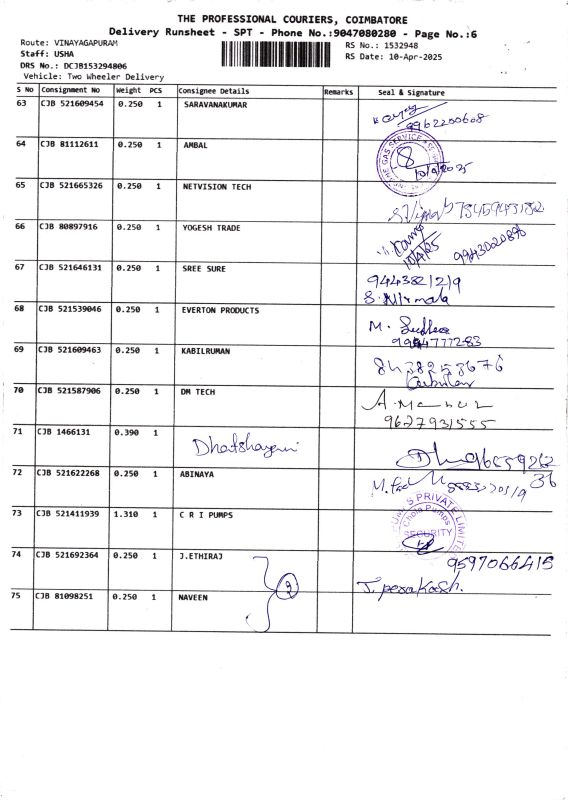 THE PROFESSIONAL COURIERS, COIMBATORE
Delivery Runsheet - SPT - Phone No.:9047080280 - Page No.:6
Route: VINAYAGAPURAM
RS No.: 1532948
Staff: USHA
RS Date: 10-Apr-2025
DRS No.: DCJB153294806
Vehicle: Two Wheeler Delivery
S No Consignment No Weight PCS Consignee Details Remarks Seal & Signature
63 CJB 521609454 0.250 1 SARAVANAKUMAR
9962200608
64 CJB 81112611 0.250 1 AMBAL
GAS SERVICE
8
10/4/2025
65 CJB 521665326 0.250 1 NETVISION TECH
66 CJB 80897916 0.250 1 YOGESH TRADE
10/4/25
9943020898
67 CJB 521646131 0.250 1 SREE SURE
9443821219
S. Nirmala
68 CJB 521539046 0.250 1 EVERTON PRODUCTS
M. Sudha
9994777283
69 CJB 521609463 0.250 1 KABILRUMAN
8438253676
70 CJB 521587906 0.250 1 DM TECH
A. Mannur
9627931555
71 CJB 1466131 0.390 1
Dhatshayani
9659262
36
72 CJB 521622268 0.250 1 ABINAYA
73 CJB 521411939 1.310 1 C R I PUMPS
PRIVATE LIMITED
SECURITY
74 CJB 521692364 0.250 1 J.ETHIRAJ
9597066415
J. perakash.
2
75 CJB 81098251 0.250 1 NAVEEN